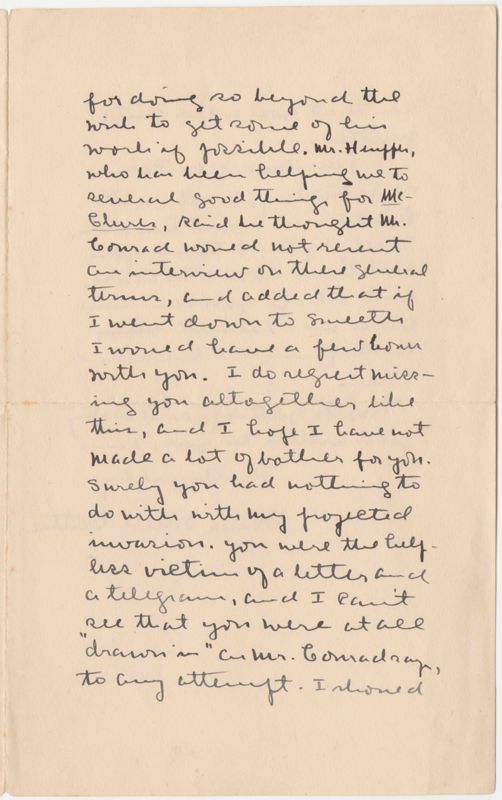 for doing so beyond the
wish to get some of his
work if possible. Mr. Hueffer,
who has been helping me to
several good things for Mc-
Clure's, said he thought Mr.
Conrad would not resent
an interview on these general
terms, and added that if
I went down to Smeeth
I would have a few hours
with you. I do regret miss-
ing you altogether like
this, and I hope I have not
made a lot of bother for you.
Surely you had nothing to
do with with my projected
invasion. you were the help-
less victim of a letter and
a telegram, and I can't
see that you were at all
"drawn in" as Mr. Conrad says,
to any attempt. I should